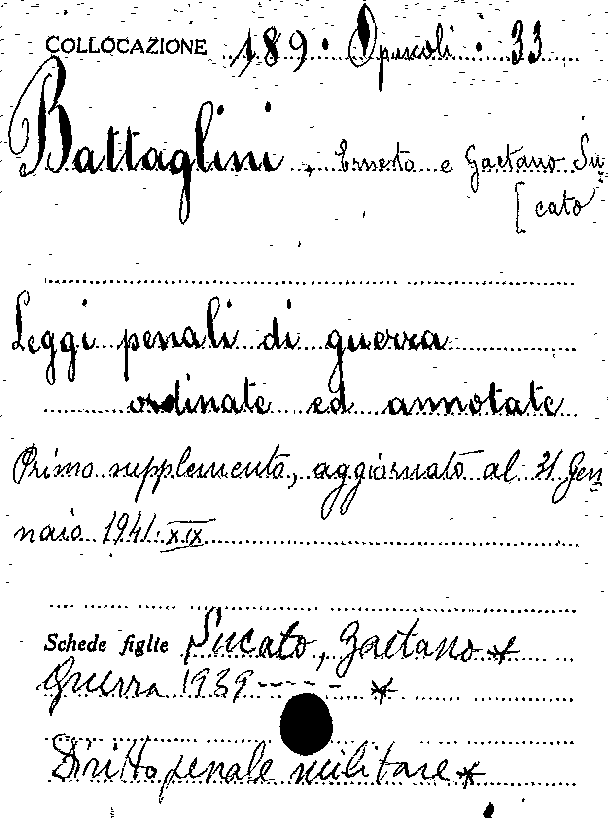 COLLOCAZIONE 189. Opuscoli. 33
Battaglini, Ernesto e Gaetano Su=
[cato
Leggi penali di guerra
ordinate ed annotate
Primo supplemento, aggiornato al 31 Gen=
naio 1941.XIX
Schede figlie Sucato, Gaetano *
Guerra 1939---- *
Diritto penale militare *